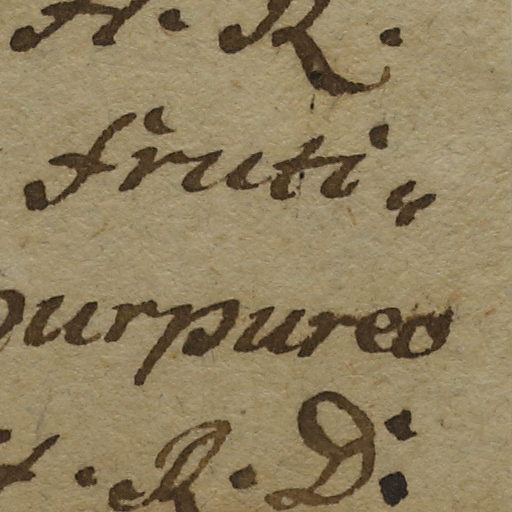 H. R.
fruti„
purpureo
H. R. D: